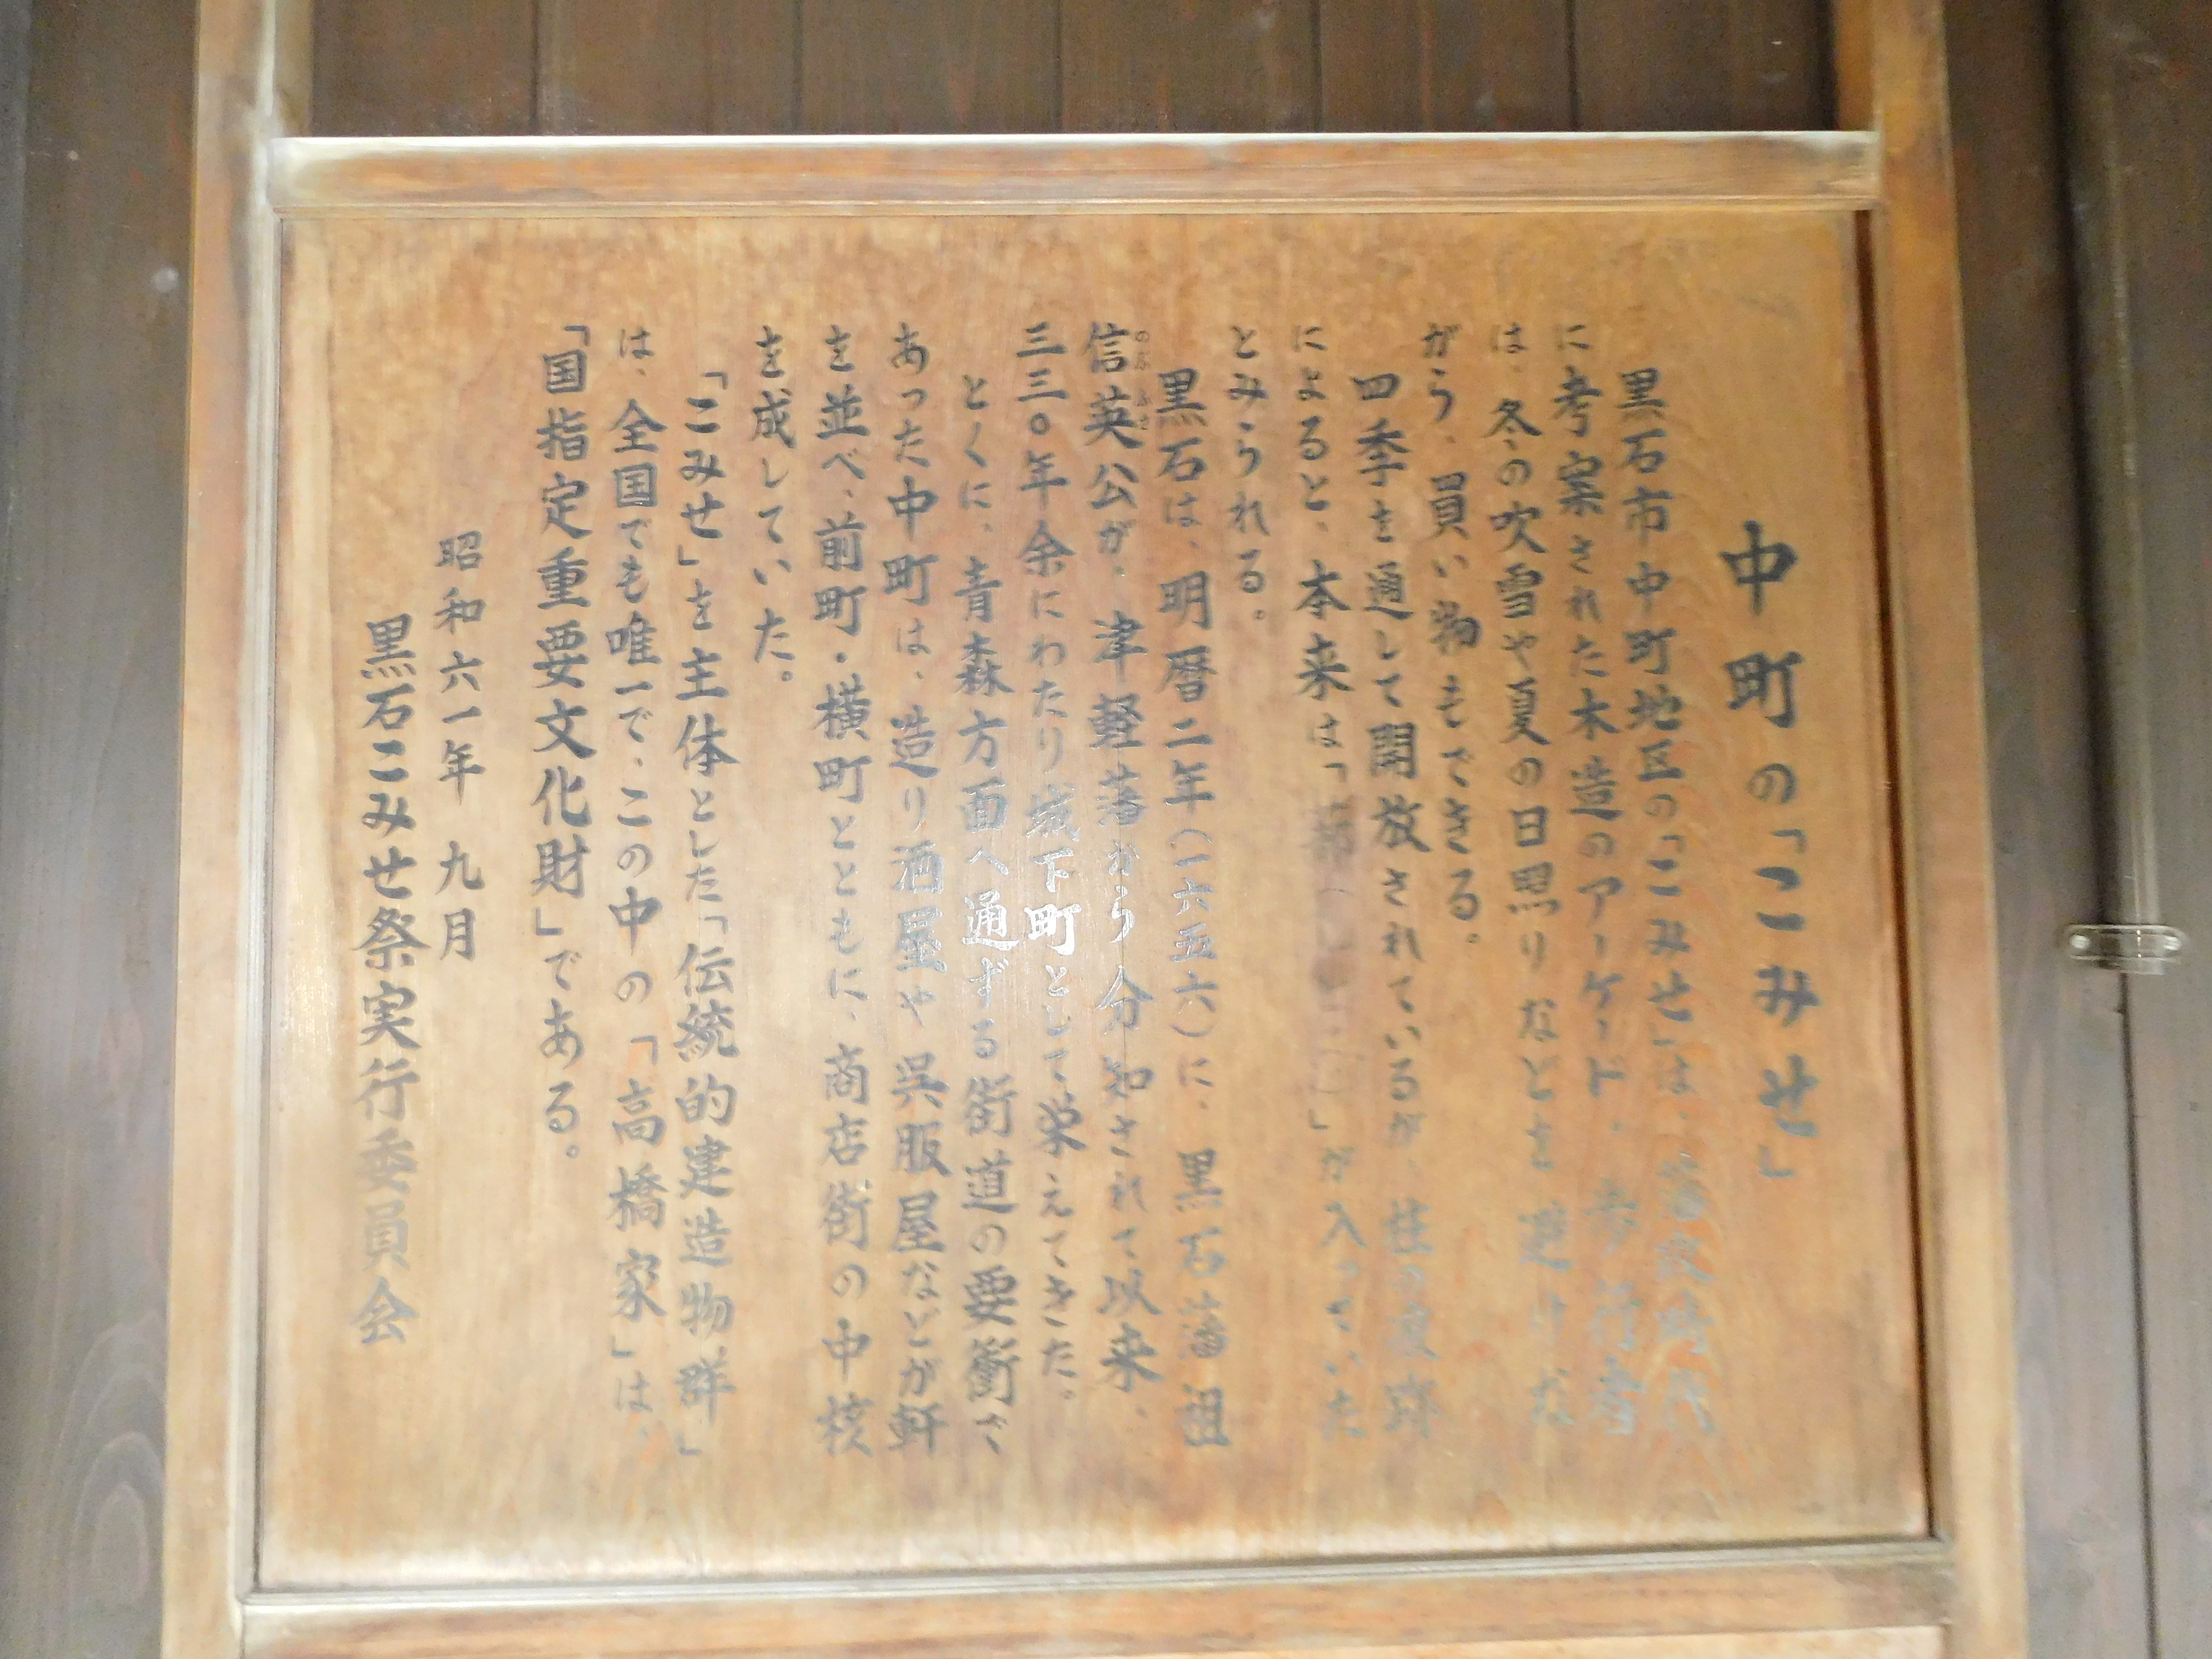 中町の「こみせ」
黒石市中町地区の「こみせ」は、藩政時代
に考案された木造のアーケード、歩行者
は、冬の吹雪や夏の日照りなどを避けな
がら、買い物もできる。
四季を通して開放されているが、柱の痕跡
によると、本来は「蔀(しとみ)」が入っていた
とみられる。
黒石は、明暦二年(一六五六)に、黒石藩祖
信英公が、津軽藩から分知されて以来、
のぶふさ
三三〇年余にわたり城下町として栄えてきた。
とくに、青森方面へ通ずる街道の要衝で
あった中町は、造り酒屋や呉服屋などが軒
を並べ、前町・横町とともに、商店街の中核
を成していた。
「こみせ」を主体とした「伝統的建造物群」
は、全国でも唯一で、この中の「高橋家」は、
「国指定重要文化財」である。
昭和六一年 九月
黒石こみせ祭実行委員会